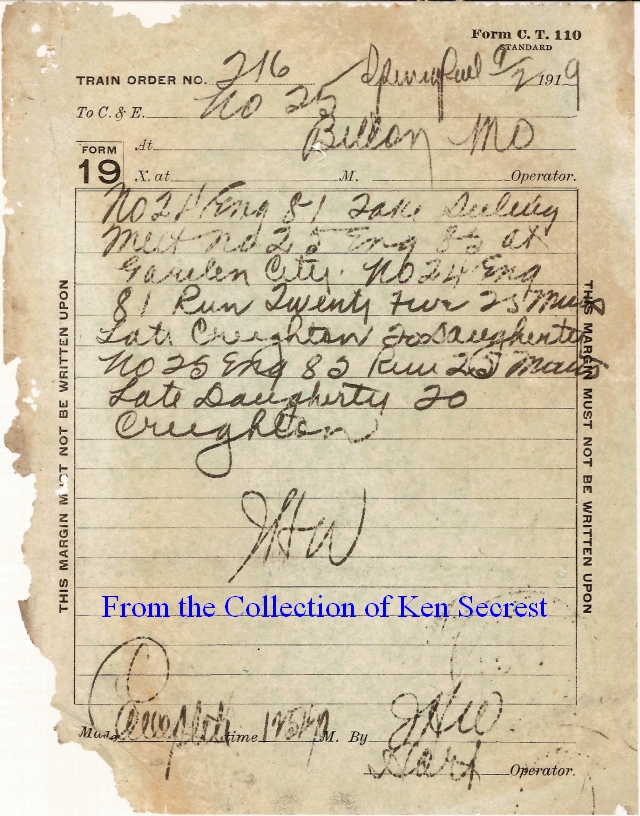 Form C. T. 110
STANDARD
TRAIN ORDER NO. 216 Springfield 9/2 1919
To C. & E. No 25
FORM 19
At Billon Mo
X. at M. Operator.
No 24 Eng 81 Take
Meet No 25 Eng 82 at
Garden City. No 24 Eng
81 Run Twenty five 25 Mins
Late Creighton to Daugherty
No 25 Eng 82 Run 25 Mins
Late Daugherty to
Creighton
JHW
THIS MARGIN MUST NOT BE WRITTEN UPON
THIS MARGIN MUST NOT BE WRITTEN UPON
From the Collection of Ken Secrest
Made Complete time M. By JHW
Operator.